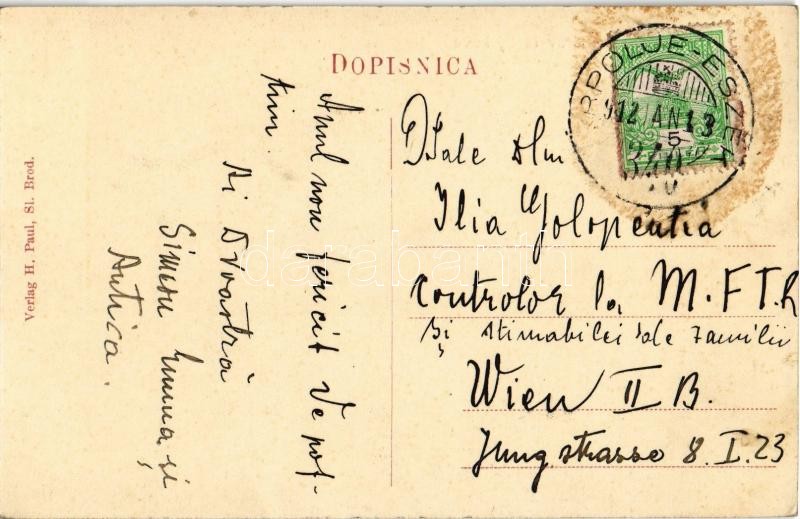 DOPISNICA
Verlag H. Paul, Sl. Brod.
Anul nou fericit Ve pof-
tim.
Ai Dvoastră
Simeon Emma și
Autica.
Dsale Dlui
Ilia Golopentia
Controlor la M.F.Th
și stimabilei sale Familii
Wien II B.
Jungstrasse 8. I. 23
912 JAN 13
5